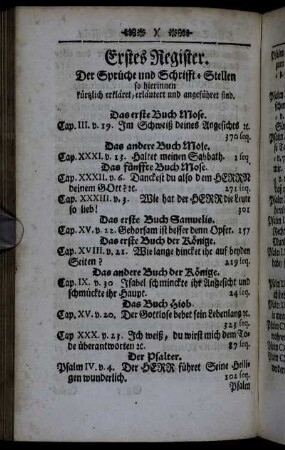 X
Erstes Register.
Der Sprüche und Schrifft-Stellen
so hierinnen
kürtzlich erkläret, erläutert und angeführet sind.
Das erste Buch Mose.
Cap. III. v. 19. Im Schweiß deines Angesichts ꝛc.
370 seq.
Das andere Buch Mose.
Cap. XXXI. v. 13. Haltet meinen Sabbath. 1 seq.
Das fünffte Buch Mose.
Cap. XXXII. v. 6. Danckest du also dem HERRN
deinem GOtt? ꝛc. 271 seq.
Cap. XXXIII. v. 3. Wie hat der HERR die Leute
so lieb! 301
Das erste Buch Samuelis.
Cap. XV. v. 22. Gehorsam ist besser denn Opfer. 157
Das erste Buch der Könige.
Cap. XVIII. v. 21. Wie lange hincket ihr auf beyden
Seiten? 219 seq.
Das andere Buch der Könige.
Cap. IX. v. 30 Isabel schminckte ihr Angesicht und
schmückte ihr Haupt. 24 seq.
Das Buch Hiob.
Cap. XV. v. 20. Der Gottlose bebet sein Lebenlang ꝛc.
323 seq.
Cap XXX. v. 23. Ich weiß, du wirst mich dem To-
de überantworten ꝛc. 87 seq.
Der Psalter.
Psalm IV. v. 4. Der HERR führet Seine Heili-
gen wunderlich. 102 seq.
Psalm